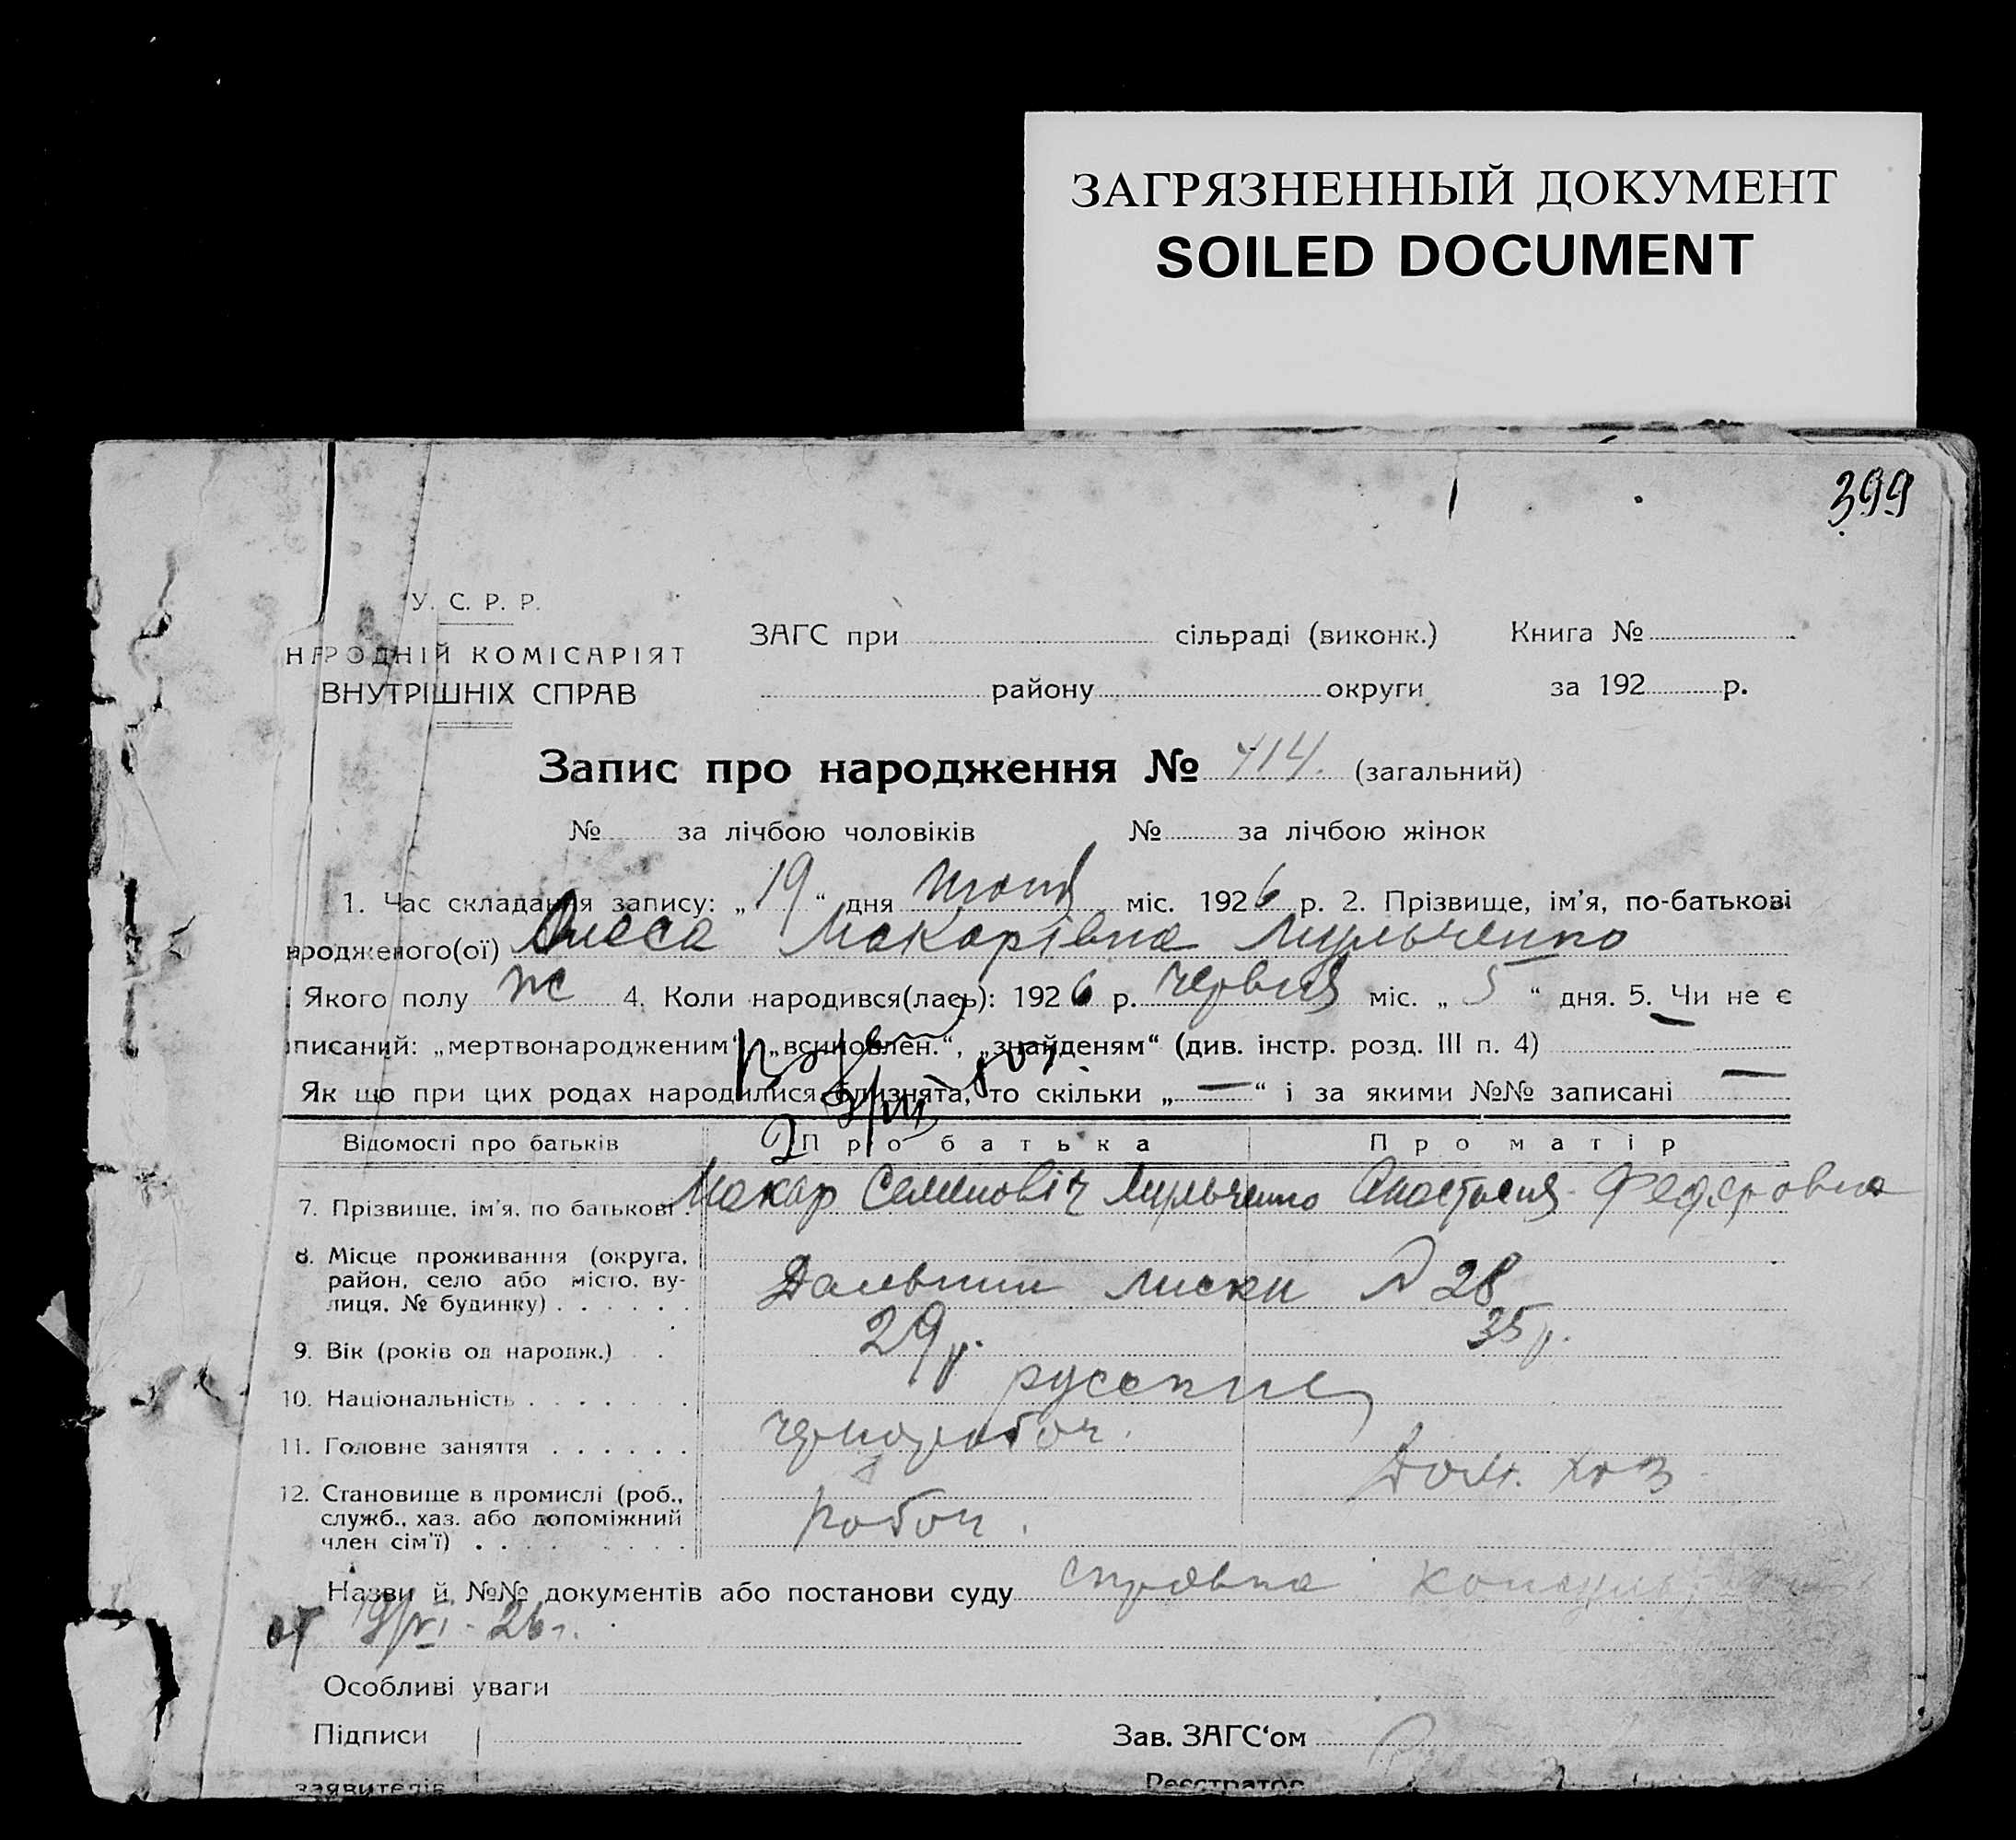 ЗАГРЯЗНЕННЫЙ ДОКУМЕНТ
SOILED DOCUMENT
399
У. С. Р. Р.
НАРОДНІЙ КОМІСАРІЯТ
ВНУТРІШНІХ СПРАВ
ЗАГС при сільраді (виконк.) Книга №
району округи за 192 р.
Запис про народження № 414. (загальний)
№ за лічбою чоловіків № за лічбою жінок
1. Час складання запису: „19“ дня міс. 1926 р. 2. Прізвище, ім'я, по-батькові
народженого(ої) Макарівна Мульченко
Якого полу ж 4. Коли народився(лась): 1926 р. червня міс. „5“ дня. 5. Чи не є
писаний: „мертвонародженим“, „всиновлен.“, „знайденям“ (див. інстр. розд. III п. 4)
Як що при цих родах народилися близнята, то скільки „—“ і за якими №№ записані —
Відомості про батьків Про батька Про матір
7. Прізвище, ім'я, по батькові . Макар Семенович Мульченко Анастасия Федоровна
8. Місце проживання (округа,
район, село або місто, ву-
лиця, № будинку) . . . . . . Дальвини лиски № 28
9. Вік (років од народж.) . . 29 р. 35 р.
10. Національність . . . . . . . русские
11. Головне заняття . . . . . . чернорабоч. Дом. хоз
12. Становище в промислі (роб.,
служб., хаз. або допоміжний
член сім'ї) . . . . . . . . рабоч.
Назви й №№ документів або постанови суду справка
от 19/VI - 26 г.
Особливі уваги
Підписи Зав. ЗАГС‘ом
заявителів Реєстратор